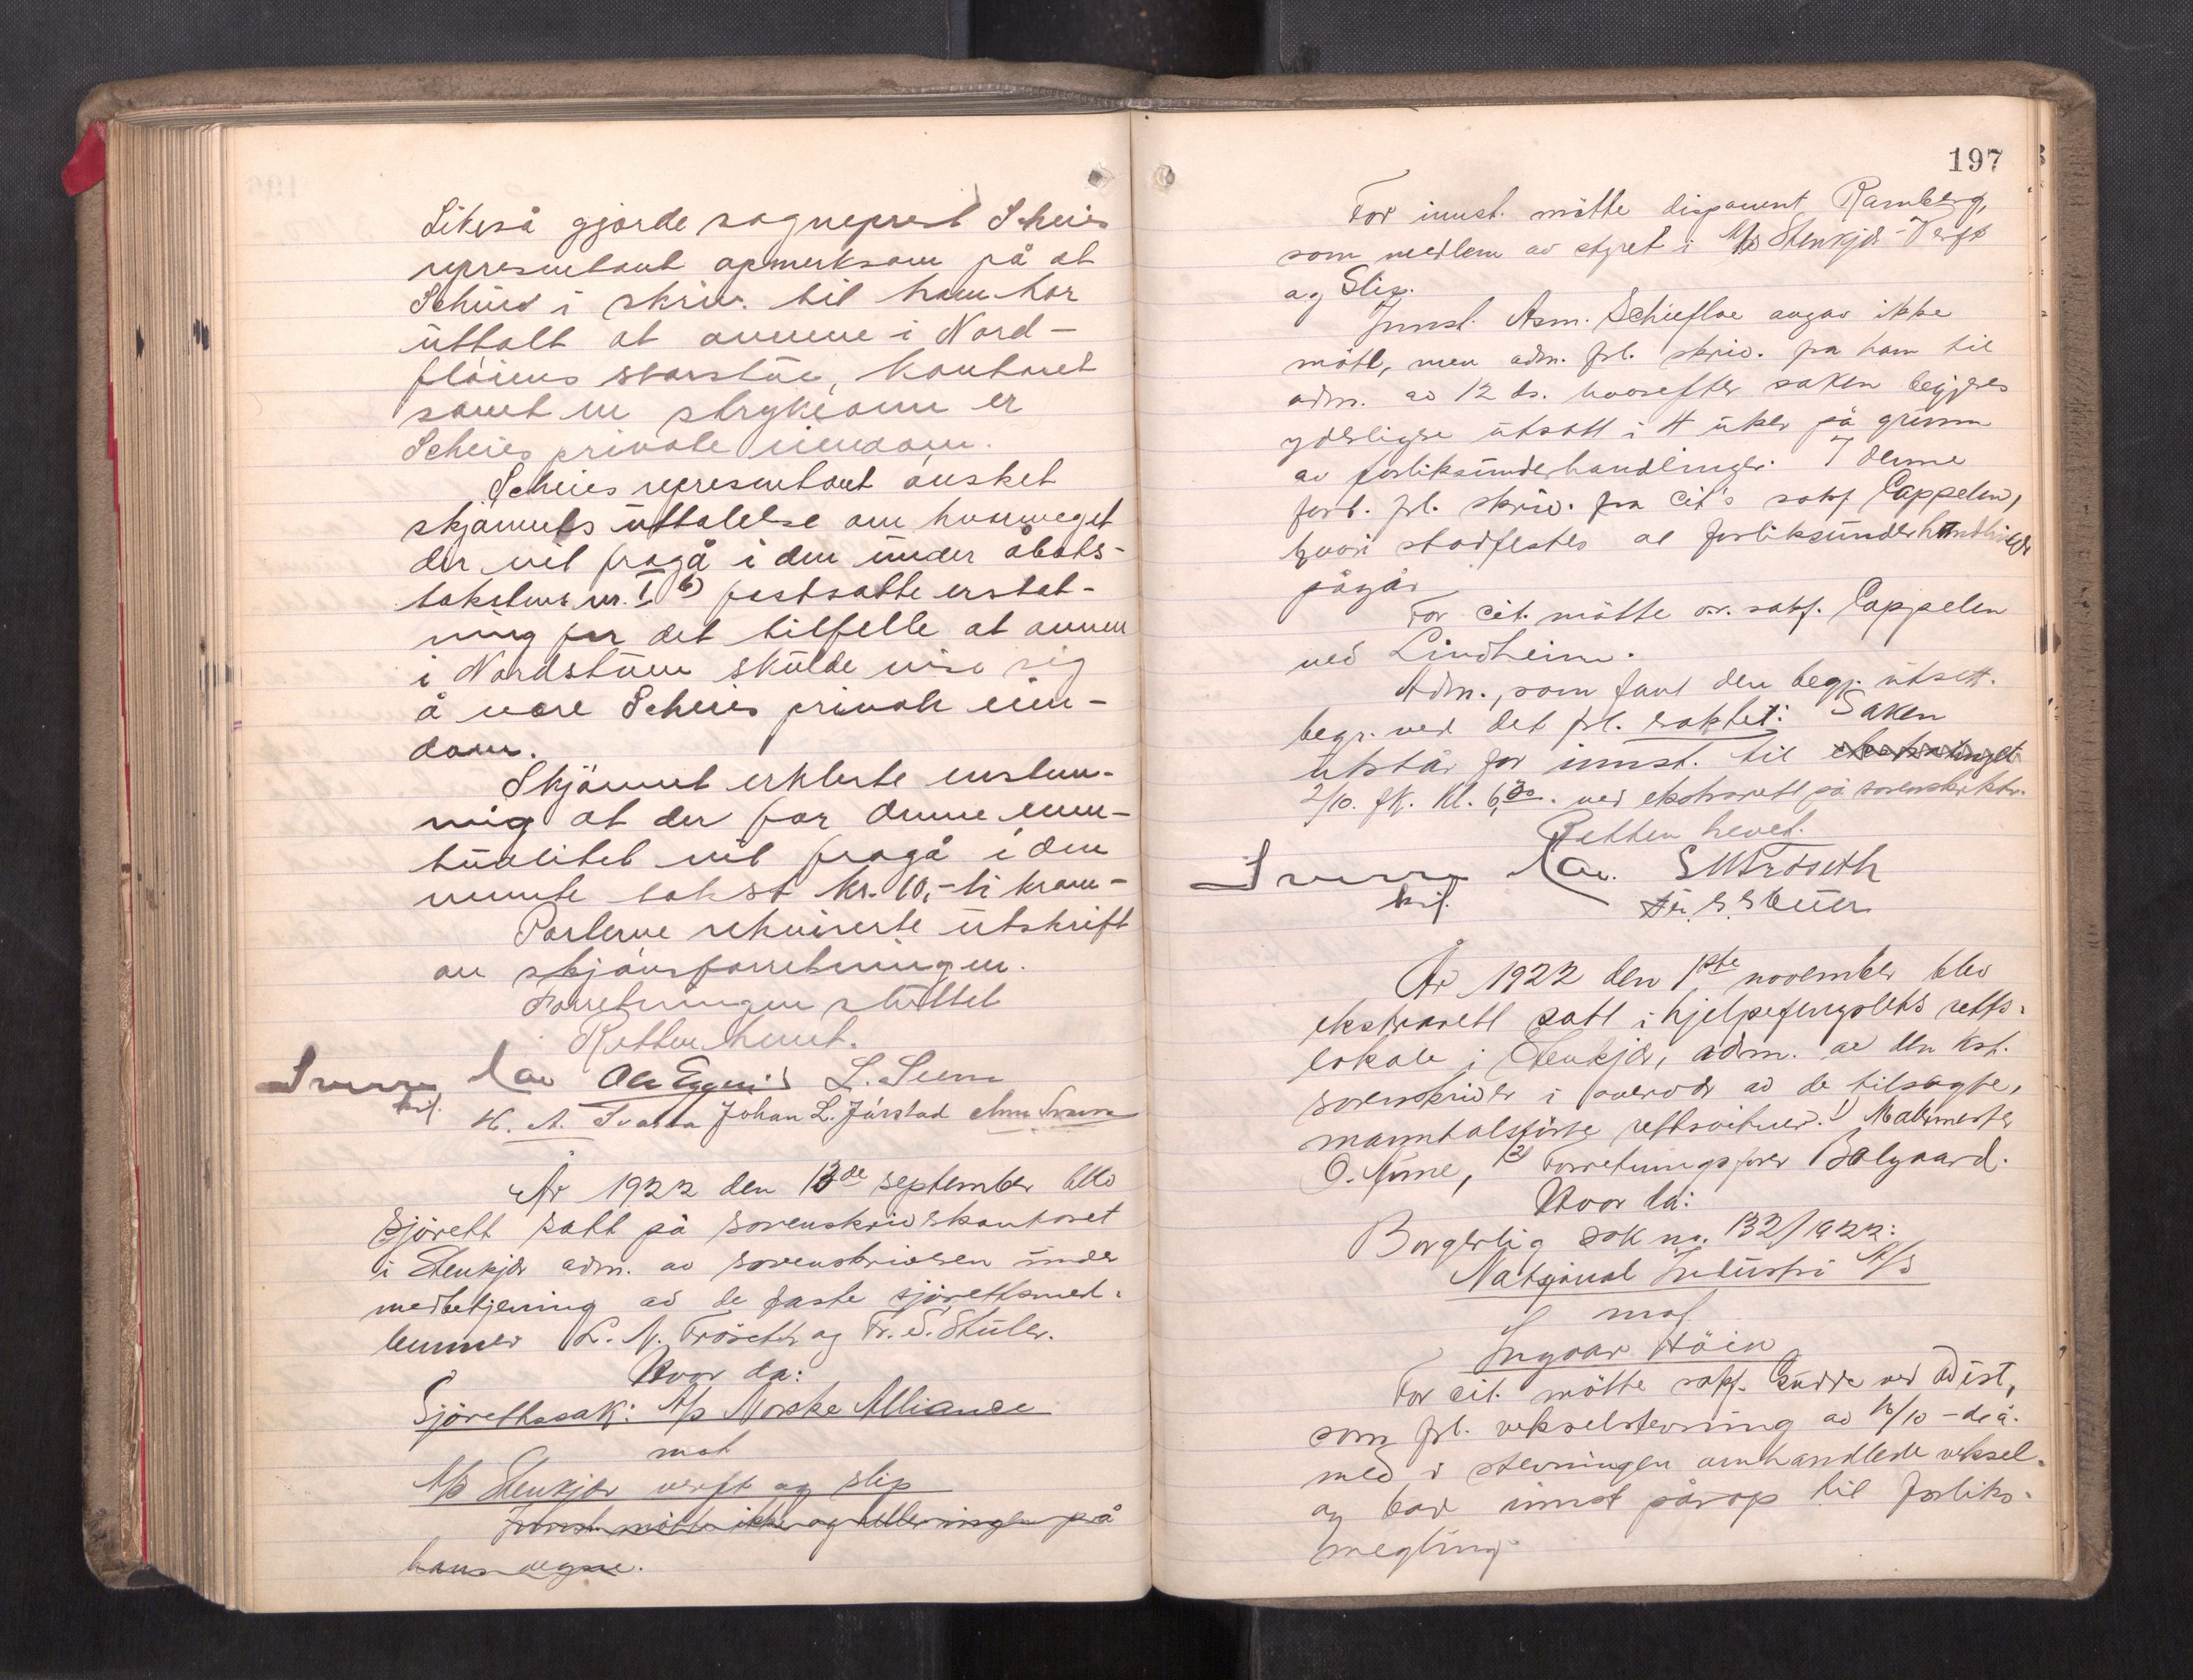 Likeså gjorde sogneprest Scheies
representant opmerksom på at
Scheies i skriv. til ham har
uttalt at ovnene i Nord-
fløiens storstue, kontoret
samt en strykeovn er
Scheies private eiendom.
Scheies representant ønsket
skjønnets uttalelse om hvormeget
der vil fragå i den under åbots-
takstens nr. I 6) festsatte erstat-
ning for det tilfelle at ovnen
i Nordstuen skulde vise sig
å være Scheies private eien-
dom.
Skjønnet erklærte enstem-
mig at der for denne even-
tualitet vil fragå i den
nevnte takst kr. 10,- ti kroner
Parterne rekvirerte utskrift
av skjønsforretningen.
Forretningen sluttet
Retten hevet.
Ola Eggen L. Seem
kst.
H. A. Johan L. Jørstad
År 1922 den 13de september blev
sjørett satt på sorenskriverkontoret
i Stenkjær adm. av sorenskriveren under
medbetjening av de faste sjørettsmed-
lemmer L. M. Trøseth og Fr. S. Stüler.
Hvor da:
Sjørettssak: A/S Norske Alliance
mot
A/S Stenkjær verft og slip
Innst. møtte ikke og heller ingen på
hans vegne.
197
For innst. møtte disponent Ramberg,
som medlem av styret i A/S Stenkjær-Verft
og Slip.
Innst. Asm. Schiefloe angav ikke
møtt, men adm. frl. skriv. fra ham til
adm. av 12 ds. hvorefter saken begjæres
yderligere utsatt i 4 uker på grunn
av forliksunderhandlinger. I denne
forb. frl. skriv. fra cit's sakf Cappelen,
hvori stadfestes at forliksunderhandlinger
pågår
For cit. møtte or. sakf. Cappelen
ved Lindheim.
Adm., som fant den begj. utsett.
begr. ved det frl. saktet: Saken
utstår for innst. til
2/10. fk. kl. 6,00. ved ekstrarett på sorenskrktr.
Retten hevet.
kst.
År 1922 den 1ste november blev
ekstrarett satt i hjelpefengslets retts-
lokale i Stenkjær, adm. av den kst.
sorenskriver i overvær av de tilsagte,
manntalsførte rettsvitner: 1) Malermester
O. Aune, 2) Forretningsfører Bolgaard.
Hvor da:
Borgerlig sak nr. 132/1922:
Natsjonal Industri A/S
mot
Ingvar Höin
For cit. møtte sakf. Gudde ved Qvist,
som frl. vekselstevning av 16/10 - ds å.
med i stevningen omhandlede veksel.
og bad innst pårop til forliks-
megling.